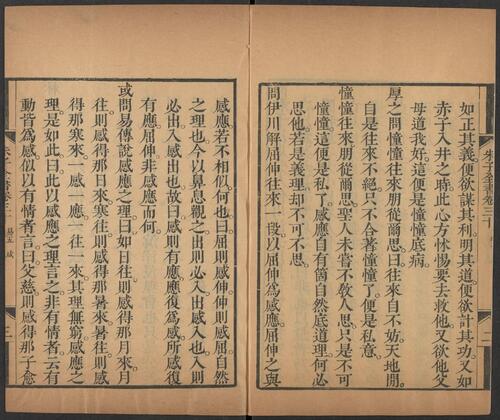 朱子全書卷三十
二
如正其義便欲謀其利明其道便欲計其功又如
赤子入井之時此心方怵惕要去救他又欲他父
母道我好這便是憧憧底病
厚之問憧憧往來朋從爾思曰往來自不妨天地間
自是往來不絕只不合著憧憧了便是私意
憧憧往來朋從爾思聖人未嘗不敎人思只是不可
憧憧這便是私了感應自有箇自然底道理何必
思他若是義理却不可不思
問伊川解屈伸往來一段以屈伸爲感應屈伸之與
感應若不相似何也曰屈則感伸伸則感屈自然
之理也今以鼻息觀之出則必入出感入也入則
必出入感出也故曰感則有應應復爲感所感復
有應屈伸非感應而何
或問易傳說感應之理曰如日往則感得那月來月
往則感得那日來寒往則感得那暑來暑往則感
得那寒來一感一應一往一來其理無窮感應之
理是如此曰此以感應之理言之非有情者云有
動皆爲感似以有情者言曰父慈則感得那子愈
易五 咸
三